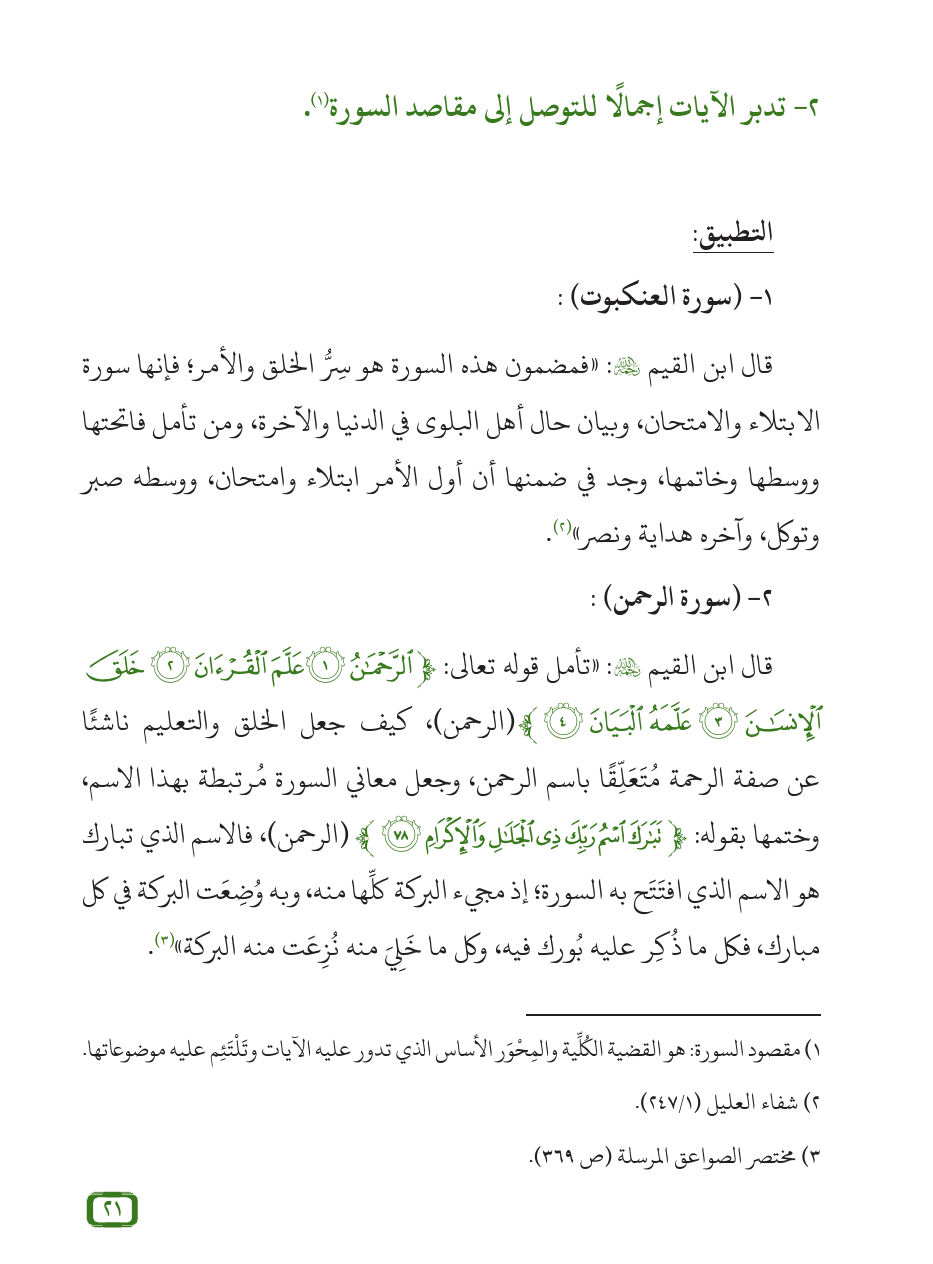 ٢- تدبر الآيات إجمالًا للتوصل إلى مقاصد السورة(١).
التطبيق:
١- (سورة العنكبوت) :
قال ابن القيم ﵀: «فمضمون هذه السورة هو سِرُّ الخلق والأمر؛ فإنها سورة
الابتلاء والامتحان، وبيان حال أهل البلوى في الدنيا والآخرة، ومن تأمل فاتحتها
ووسطها وخاتمها، وجد في ضمنها أن أول الأمر ابتلاء وامتحان، ووسطه صبر
وتوكل، وآخره هداية ونصر»(٢).
٢- (سورة الرحمن) :
قال ابن القيم ﵀: «تأمل قوله تعالى: ﴿ ٱلرَّحۡمَٰنُ ١ عَلَّمَ ٱلۡقُرۡءَانَ ٢ خَلَقَ
ٱلۡإِنسَٰنَ ٣ عَلَّمَهُ ٱلۡبَيَانَ ٤ ﴾ (الرحمن)، كيف جعل الخلق والتعليم ناشئًا
عن صفة الرحمة مُتَعَلِّقًا باسم الرحمن، وجعل معاني السورة مُرتبطة بهذا الاسم،
وختمها بقوله: ﴿ تَبَٰرَكَ ٱسۡمُ رَبِّكَ ذِي ٱلۡجَلَٰلِ وَٱلۡإِكۡرَامِ ٧٨ ﴾ (الرحمن)، فالاسم الذي تبارك
هو الاسم الذي افتَتَح به السورة؛ إذ مجيء البركة كلِّها منه، وبه وُضِعَت البركة في كل
مبارك، فكل ما ذُكِر عليه بُورك فيه، وكل ما خَلِيَ منه نُزِعَت منه البركة»(٣).
١) مقصود السورة: هو القضية الكُلِّية والمِحْوَر الأساس الذي تدور عليه الآيات وتَلْتَئِم عليه موضوعاتها.
٢) شفاء العليل (٢٤٧/١).
٣) مختصر الصواعق المرسلة (ص ٣٦٩).
٢١